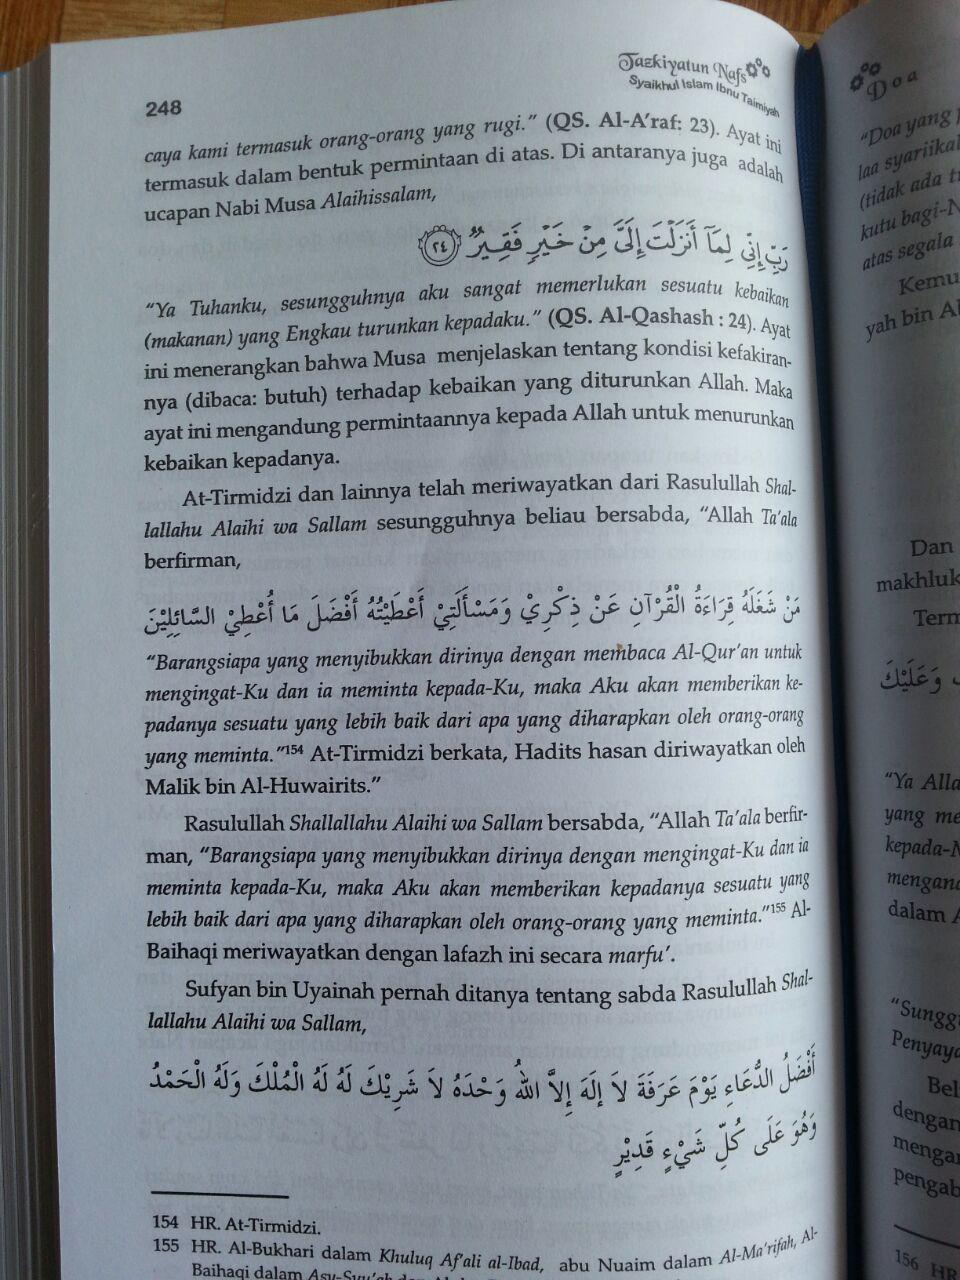 248
Tazkiyatun Nafs
Syaikhul Islam Ibnu Taimiyah
caya kami termasuk orang-orang yang rugi." (QS. Al-A'raf: 23). Ayat ini
termasuk dalam bentuk permintaan di atas. Di antaranya juga adalah
ucapan Nabi Musa Alaihissalam,
رَبِّ إِنِّي لِمَآ أَنزَلْتَ إِلَيَّ مِنْ خَيْرٍ فَقِيرٌ ٢٤
"Ya Tuhanku, sesungguhnya aku sangat memerlukan sesuatu kebaikan
(makanan) yang Engkau turunkan kepadaku." (QS. Al-Qashash : 24). Ayat
ini menerangkan bahwa Musa menjelaskan tentang kondisi kefakiran-
nya (dibaca: butuh) terhadap kebaikan yang diturunkan Allah. Maka
ayat ini mengandung permintaannya kepada Allah untuk menurunkan
kebaikan kepadanya.
At-Tirmidzi dan lainnya telah meriwayatkan dari Rasulullah Shal-
lallahu Alaihi wa Sallam sesungguhnya beliau bersabda, "Allah Ta'ala
berfirman,
مَنْ شَغَلَهُ قِرَاءَةُ الْقُرْآنِ عَنْ ذِكْرِيْ وَمَسْأَلَتِيْ أَعْطَيْتُهُ أَفْضَلَ مَا أُعْطِيْ السَّائِلِيْنَ
"Barangsiapa yang menyibukkan dirinya dengan membaca Al-Qur'an untuk
mengingat-Ku dan ia meminta kepada-Ku, maka Aku akan memberikan ke-
padanya sesuatu yang lebih baik dari apa yang diharapkan oleh orang-orang
yang meminta."154 At-Tirmidzi berkata, Hadits hasan diriwayatkan oleh
Malik bin Al-Huwairits."
Rasulullah Shallallahu Alaihi wa Sallam bersabda, "Allah Ta'ala berfir-
man, "Barangsiapa yang menyibukkan dirinya dengan mengingat-Ku dan ia
meminta kepada-Ku, maka Aku akan memberikan kepadanya sesuatu yang
lebih baik dari apa yang diharapkan oleh orang-orang yang meminta."155 Al-
Baihaqi meriwayatkan dengan lafazh ini secara marfu'.
Sufyan bin Uyainah pernah ditanya tentang sabda Rasulullah Shal-
lallahu Alaihi wa Sallam,
أَفْضَلُ الدُّعَاءِ يَوْمَ عَرَفَةَ لاَ إِلَهَ إِلاَّ اللهُ وَحْدَهُ لاَ شَرِيْكَ لَهُ لَهُ الْمُلْكَ وَلَهُ الْحَمْدُ
وَهُوَ عَلَى كُلِّ شَيْءٍ قَدِيْرٍ
154 HR. At-Tirmidzi.
155 HR. Al-Bukhari dalam Khuluq Af'ali al-Ibad, abu Nuaim dalam Al-Ma'rifah, Al-
Baihaqi dalam
Doa
"Doa yang
laa syariikal
(tidak ada
kutu bagi-N
atas segala
Kemu
yah bin Al
Dan
makhluk
Term
وَعَلَيْكَ
"Ya Alla
yang me
kepada-
mengand
dalam A
"Sungg
Penyaya
Bel
dengan
mengan
pengab
156 HR